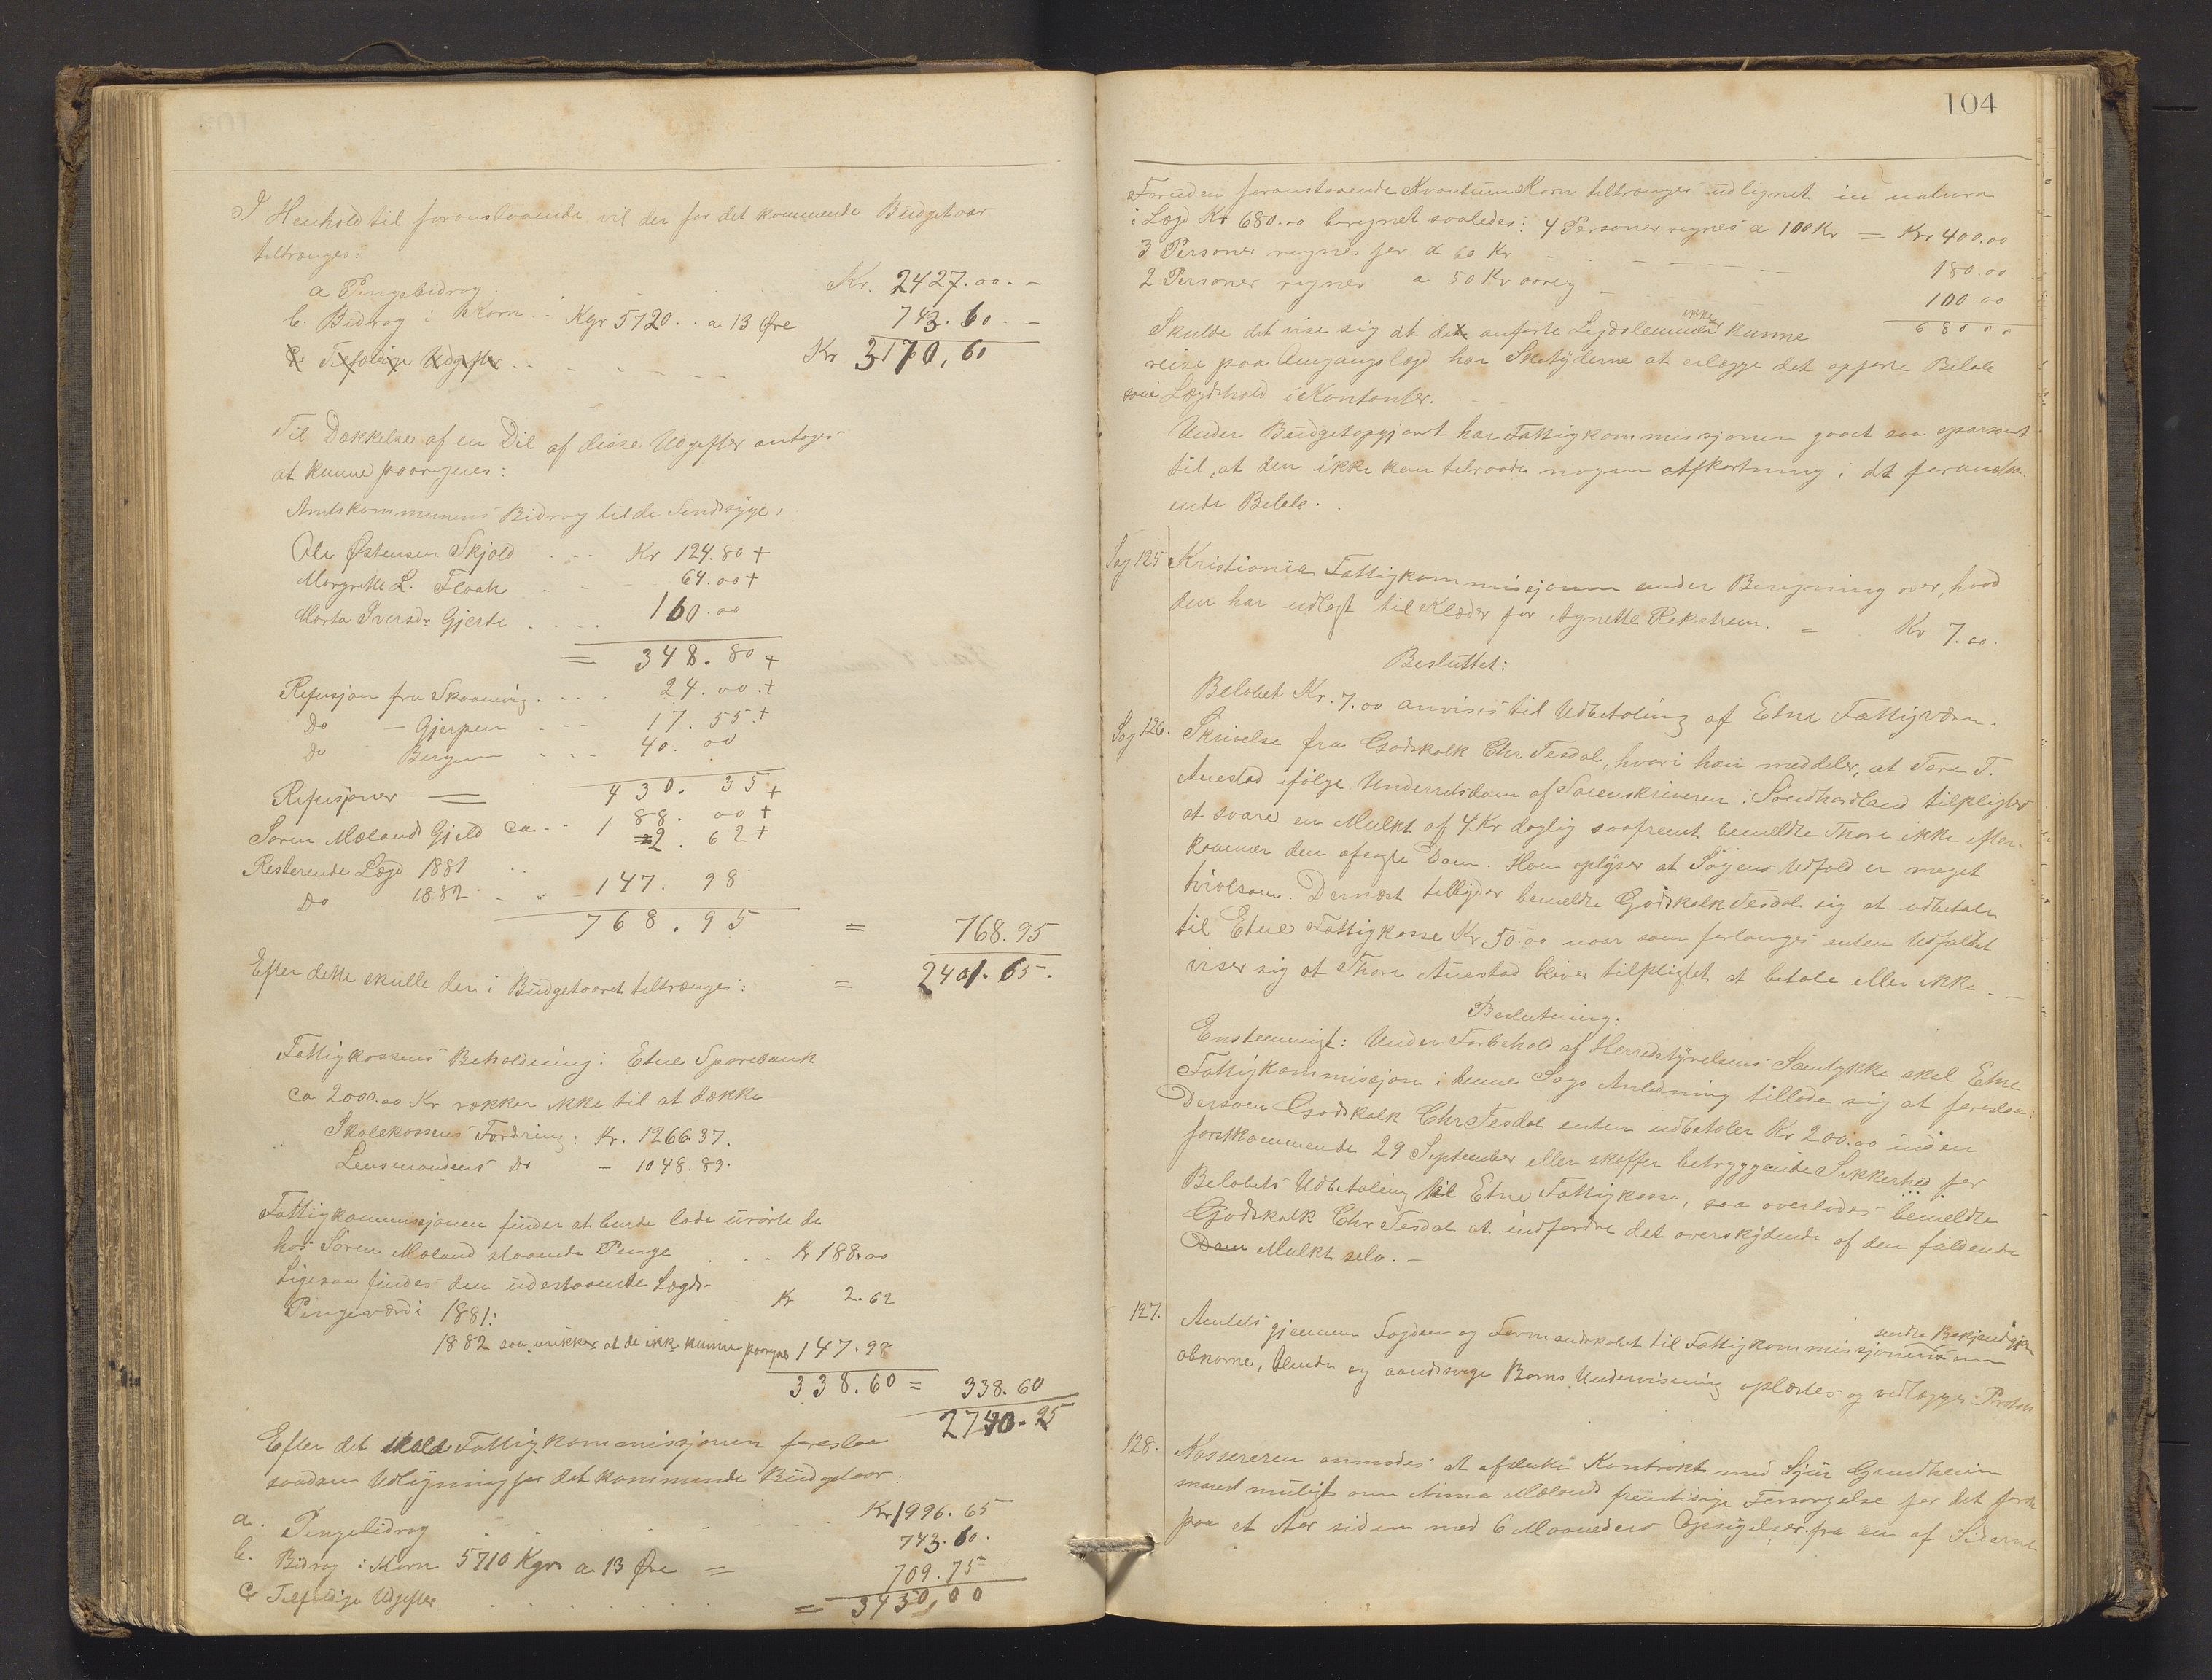 I Henhold til foranstaaende vil der for det kommende Budgetaar
tiltrænges:
a Pengebidrag . . . Kr. 2427.00.-
b. Bidrag i Korn . . Kgr 5720 . . a 13 Øre 743.60.-
c Tilfældige Udgifter . . . Kr 3170,60
Til Dækkelse af en Del af disse Udgifter antages
at kunne paaregnes:
Amtskommunens Bidrag til de Sindssyge,
Ole Østensen Skjold . . . Kr 124.80 +
Margrethe L. Floch - - 64.00 +
Marta Iversdr Gjerde . . . . 160.00
= 348.80 +
Refusjon fra Skaanevig . . . . 24.00.+
Do - Gjerpen - - - 17.55.+
Do Bergen - - - 40.00
Refusjoner = 430.35 +
Søren Mælands Gjeld ca . . 188.00 +
Resterende Lægd 1881 . . 2.62 +
Do 1882 . . 147.98
768.95 = 768.95
Efter dette skulle der i Budgetaaret tiltrænges: = 2401.65.
Fattigkassens Beholdning i Etne Sparebank
ca 2000.00 Kr rækker ikke til at dække
Skolekassens Fordring: Kr. 1266.37.
Lensmandens Do - 1048.89.
Fattigkommissjonen finder at burde lade urørte de
hos Søren Mæland staaende Penge . . . Kr 188.00
Ligesaa findes den udestaaende Lægds-
Pengeværdi 1881: Kr 2.62
1882 saa usikker at de ikke kunne paaregnes 147.98
338.60 = 338.60
2740.25
Efter det skulde Fattigkommissjonen foreslaa
saadan Udligning for det kommende Budgetaar:
a. Pengebidrag . . . Kr 1996.65
b. Bidrag i Korn 5710 Kgr a 13 Øre = 743.60.
c Tilfældige Udgifter . . . 709.75
= 3450,00
104
Foruden foranstaaende Kvantum Korn tiltrænges udlignet in natura
i Lægd Kr 680.00 beregnet saaledes: 4 Personer regnes a 100 Kr = Kr 400.00
3 Personer regnes for a 60 Kr - - - 180.00
2 Personer regnes a 50 Kr aarlig - 100.00
680 00
Skulde det vise sig at de anførte Lægdslemmer ikke kunne
reise paa Omgangslægd har Skatyderne at erlægge det opførte Beløb
som Lægdshold i Kontanter. . -
Under Budgetopgjøret har Fattigkommissjonen gaaet saa sparsomt
til, at den ikke kan tilraade nogen Afkortning i det foranstaa-
ende Beløb.
Sag 125 Kristiania Fattigkommissjon sender Beregning over, hvad
den har udlagt til Klæder for Agnethe Rekstrem. = Kr 7.00.
Besluttet:
Beløbet Kr. 7.00 anvises til Udbetaling af Etne Fattigvæsn.
Sag 126. Skrivelse fra Godskalk Chr Tesdal, hvori han meddeler, at Tore T.
Auestad ifølge Underretsdom af Sorenskriveren i Søndhordland tilpligtes
at svare en Mulkt af 4 Kr daglig saafremt bemeldte Thore ikke efter-
kommer den afsagte Dom. Han oplyser at Søgens Udfald er meget
tvivlsom. Dernæst tilbyder bemeldte Godskalk Tesdal sig at udbetale
til Etne Fattigkasse Kr. 50.00 naar som forlanges enten Udfaldet
viser sig at Thore Auestad bliver tilpligtet at betale eller ikke - -
Beslutning:
Enstemmigt: Under Forbehold af Herredstyrelsens Samtykke skal Etne
Fattigkommissjon i denne Sags Anledning tillade sig at foreslaa:
Dersom Godskalk Chr Tesdal enten udbetaler Kr 200.00 inden
førstkommende 29 September eller skaffer betryggende Sikkerhed for
Beløbets Udbetaling til Etne Fattigkasse, saa overlades bemeldte
Godskalk Chr Tesdal at indfordre det overskydende af den faldende
Dom Mulkt selv. -
127. Amtets gjennem Fogden og Formandskabet til Fattigkommissjonen sendte Bekjendtgjør. om
abnorme, blinde og aandssvage Børns Undervisning oplæstes og vedlægges Protok.
128. Kassereren anmodes at afslutte Kontrakt med Sjur Grindheim
snarest muligt om Anna Mælands fremtidige Forsørgelse for det første
paa et Aar siden med 6 Maaneders Opsigelse fra en af Siderne